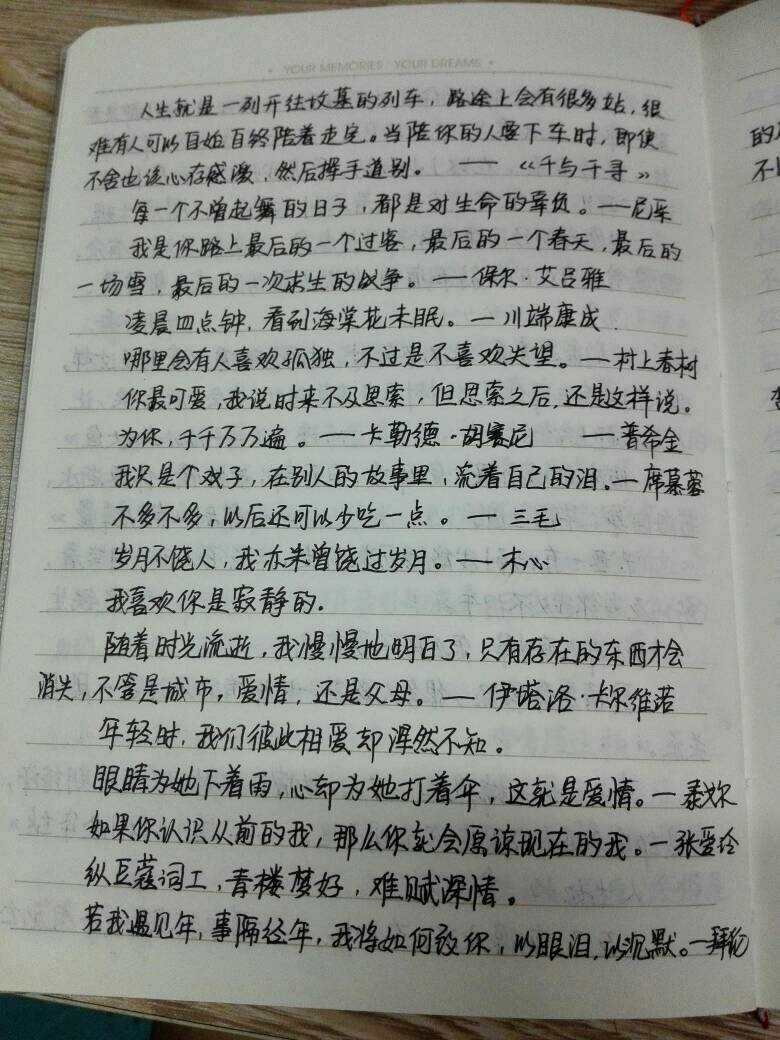 YOUR MEMORIES YOUR DREAMS
人生就是一列开往坟墓的列车，路途上会有很多站，很
难有人可以自始自终陪着走完。当陪你的人要下车时，即使
不舍也该心存感激，然后挥手道别。 —— 《千与千寻》
每一个不曾起舞的日子，都是对生命的辜负。——尼采
我是你路上最后的一个过客，最后的一个春天，最后的
一场雪，最后的一次求生的战争。——保尔·艾吕雅
凌晨四点钟，看到海棠花未眠。—川端康成.
哪里会有人喜欢孤独，不过是不喜欢失望。——村上春树
你最可爱，我说时来不及思索，但思索之后，还是这样说。
为你，千千万万遍。——卡勒德·胡赛尼 ——普希金
我只是个戏子，在别人的故事里，流着自己的泪。—席慕蓉
不多不多，以后还可以少吃一点。—三毛
岁月不饶人，我亦未曾饶过岁月。——木心
我喜欢你是寂静的.
随着时光流逝，我慢慢地明白了，只有存在的东西才会
消失，不管是城市，爱情，还是父母。——伊塔洛·卡尔维诺
年轻时，我们彼此相爱却浑然不知。
眼睛为她下着雨，心却为她打着伞，这就是爱情。—泰戈尔
如果你认识从前的我，那么你就会原谅现在的我。—张爱玲
纵豆蔻词工，青楼梦好，难赋深情。
若我遇见年，事隔经年，我将如何致你，以眼泪，以沉默。—拜伦